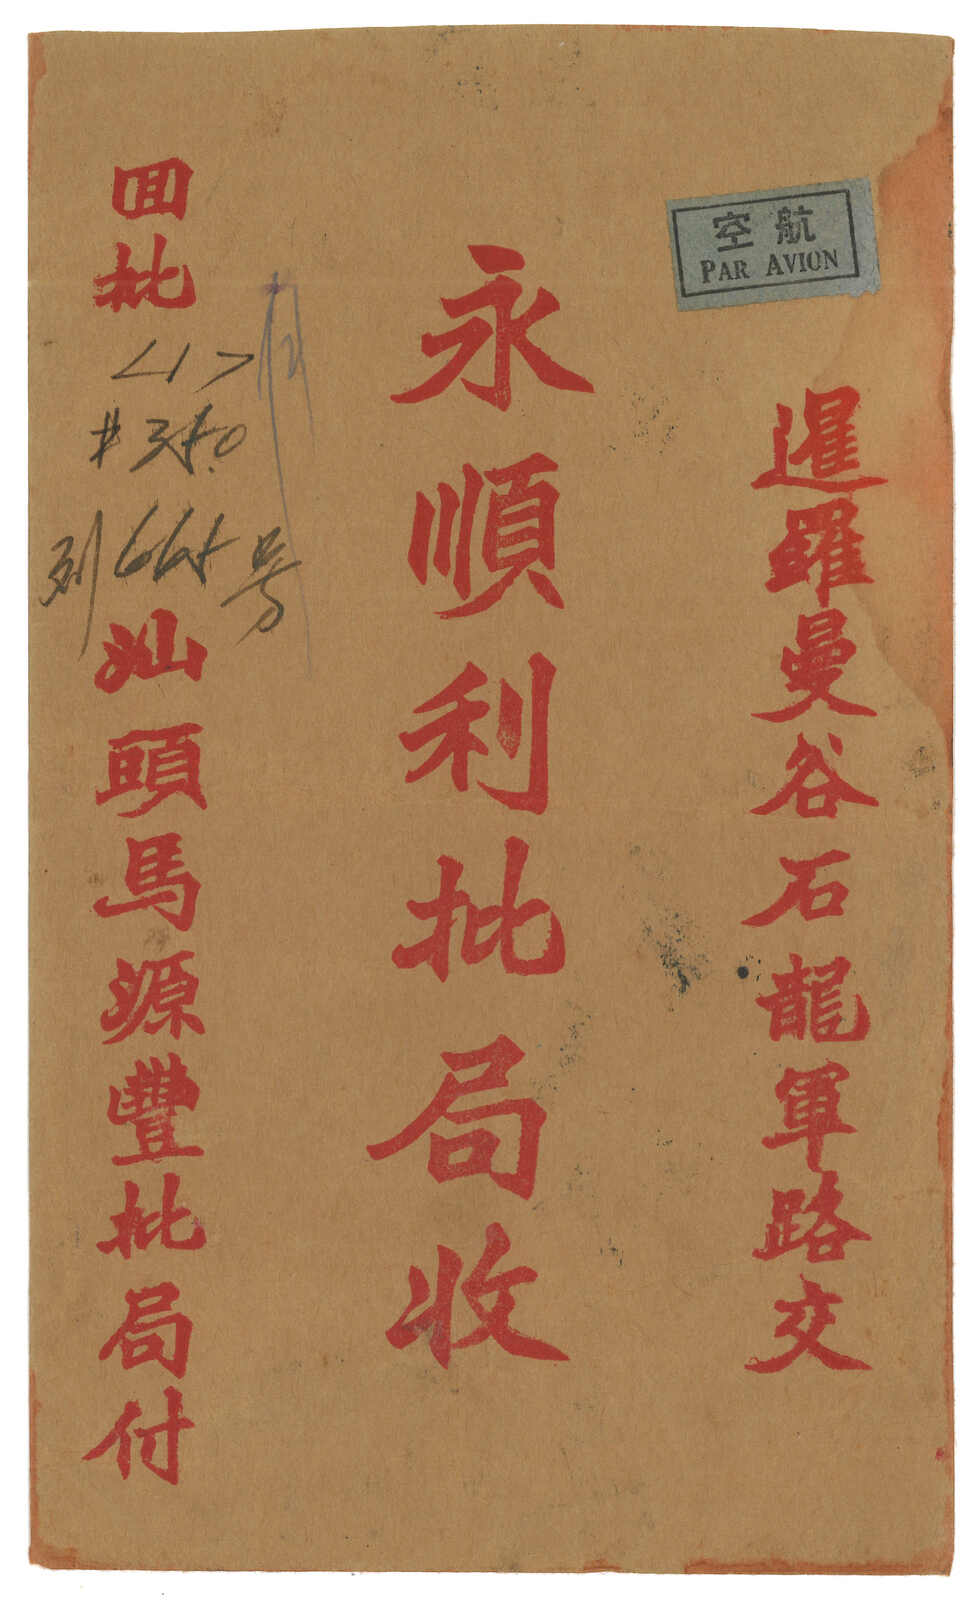 航空
PAR AVION
暹羅曼谷石龍軍路交
永順利批局收
回批
<1>
#350
列665号
汕頭馬源豐批局付